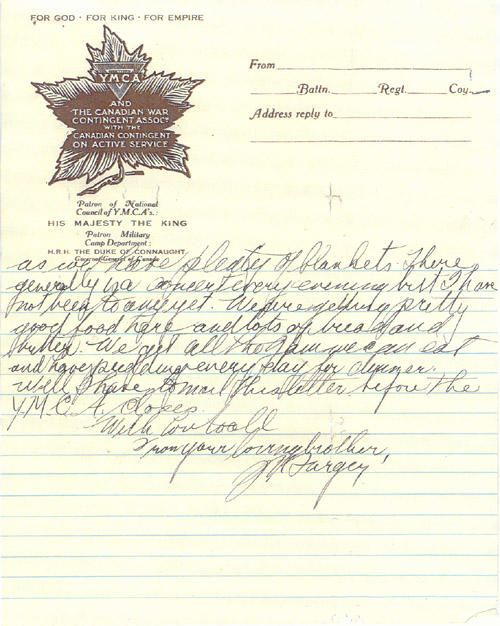 FOR GOD · FOR KING · FOR EMPIRE
YMCA
AND
THE CANADIAN WAR
CONTINGENT ASSOCN
WITH THE
CANADIAN CONTINGENT
ON ACTIVE SERVICE
Patron of National
Council of Y.M.C.A's.:
HIS MAJESTY THE KING
Patron Military
Camp Department:
H.R.H. THE DUKE OF CONNAUGHT,
Governor General of Canada
From
Battn. Regt. Coy.
Address reply to
as we have plenty of blankets. There
generally is a concert every evening but I have
not been to any yet. We are getting pretty
good food here and lots of bread and
butter. We get all the jam we can eat
and have pudding every day for dinner.
Well I have to mail this letter before the
Y.M.C.A. closes.
With love to all
From your loving brother,
Fargey